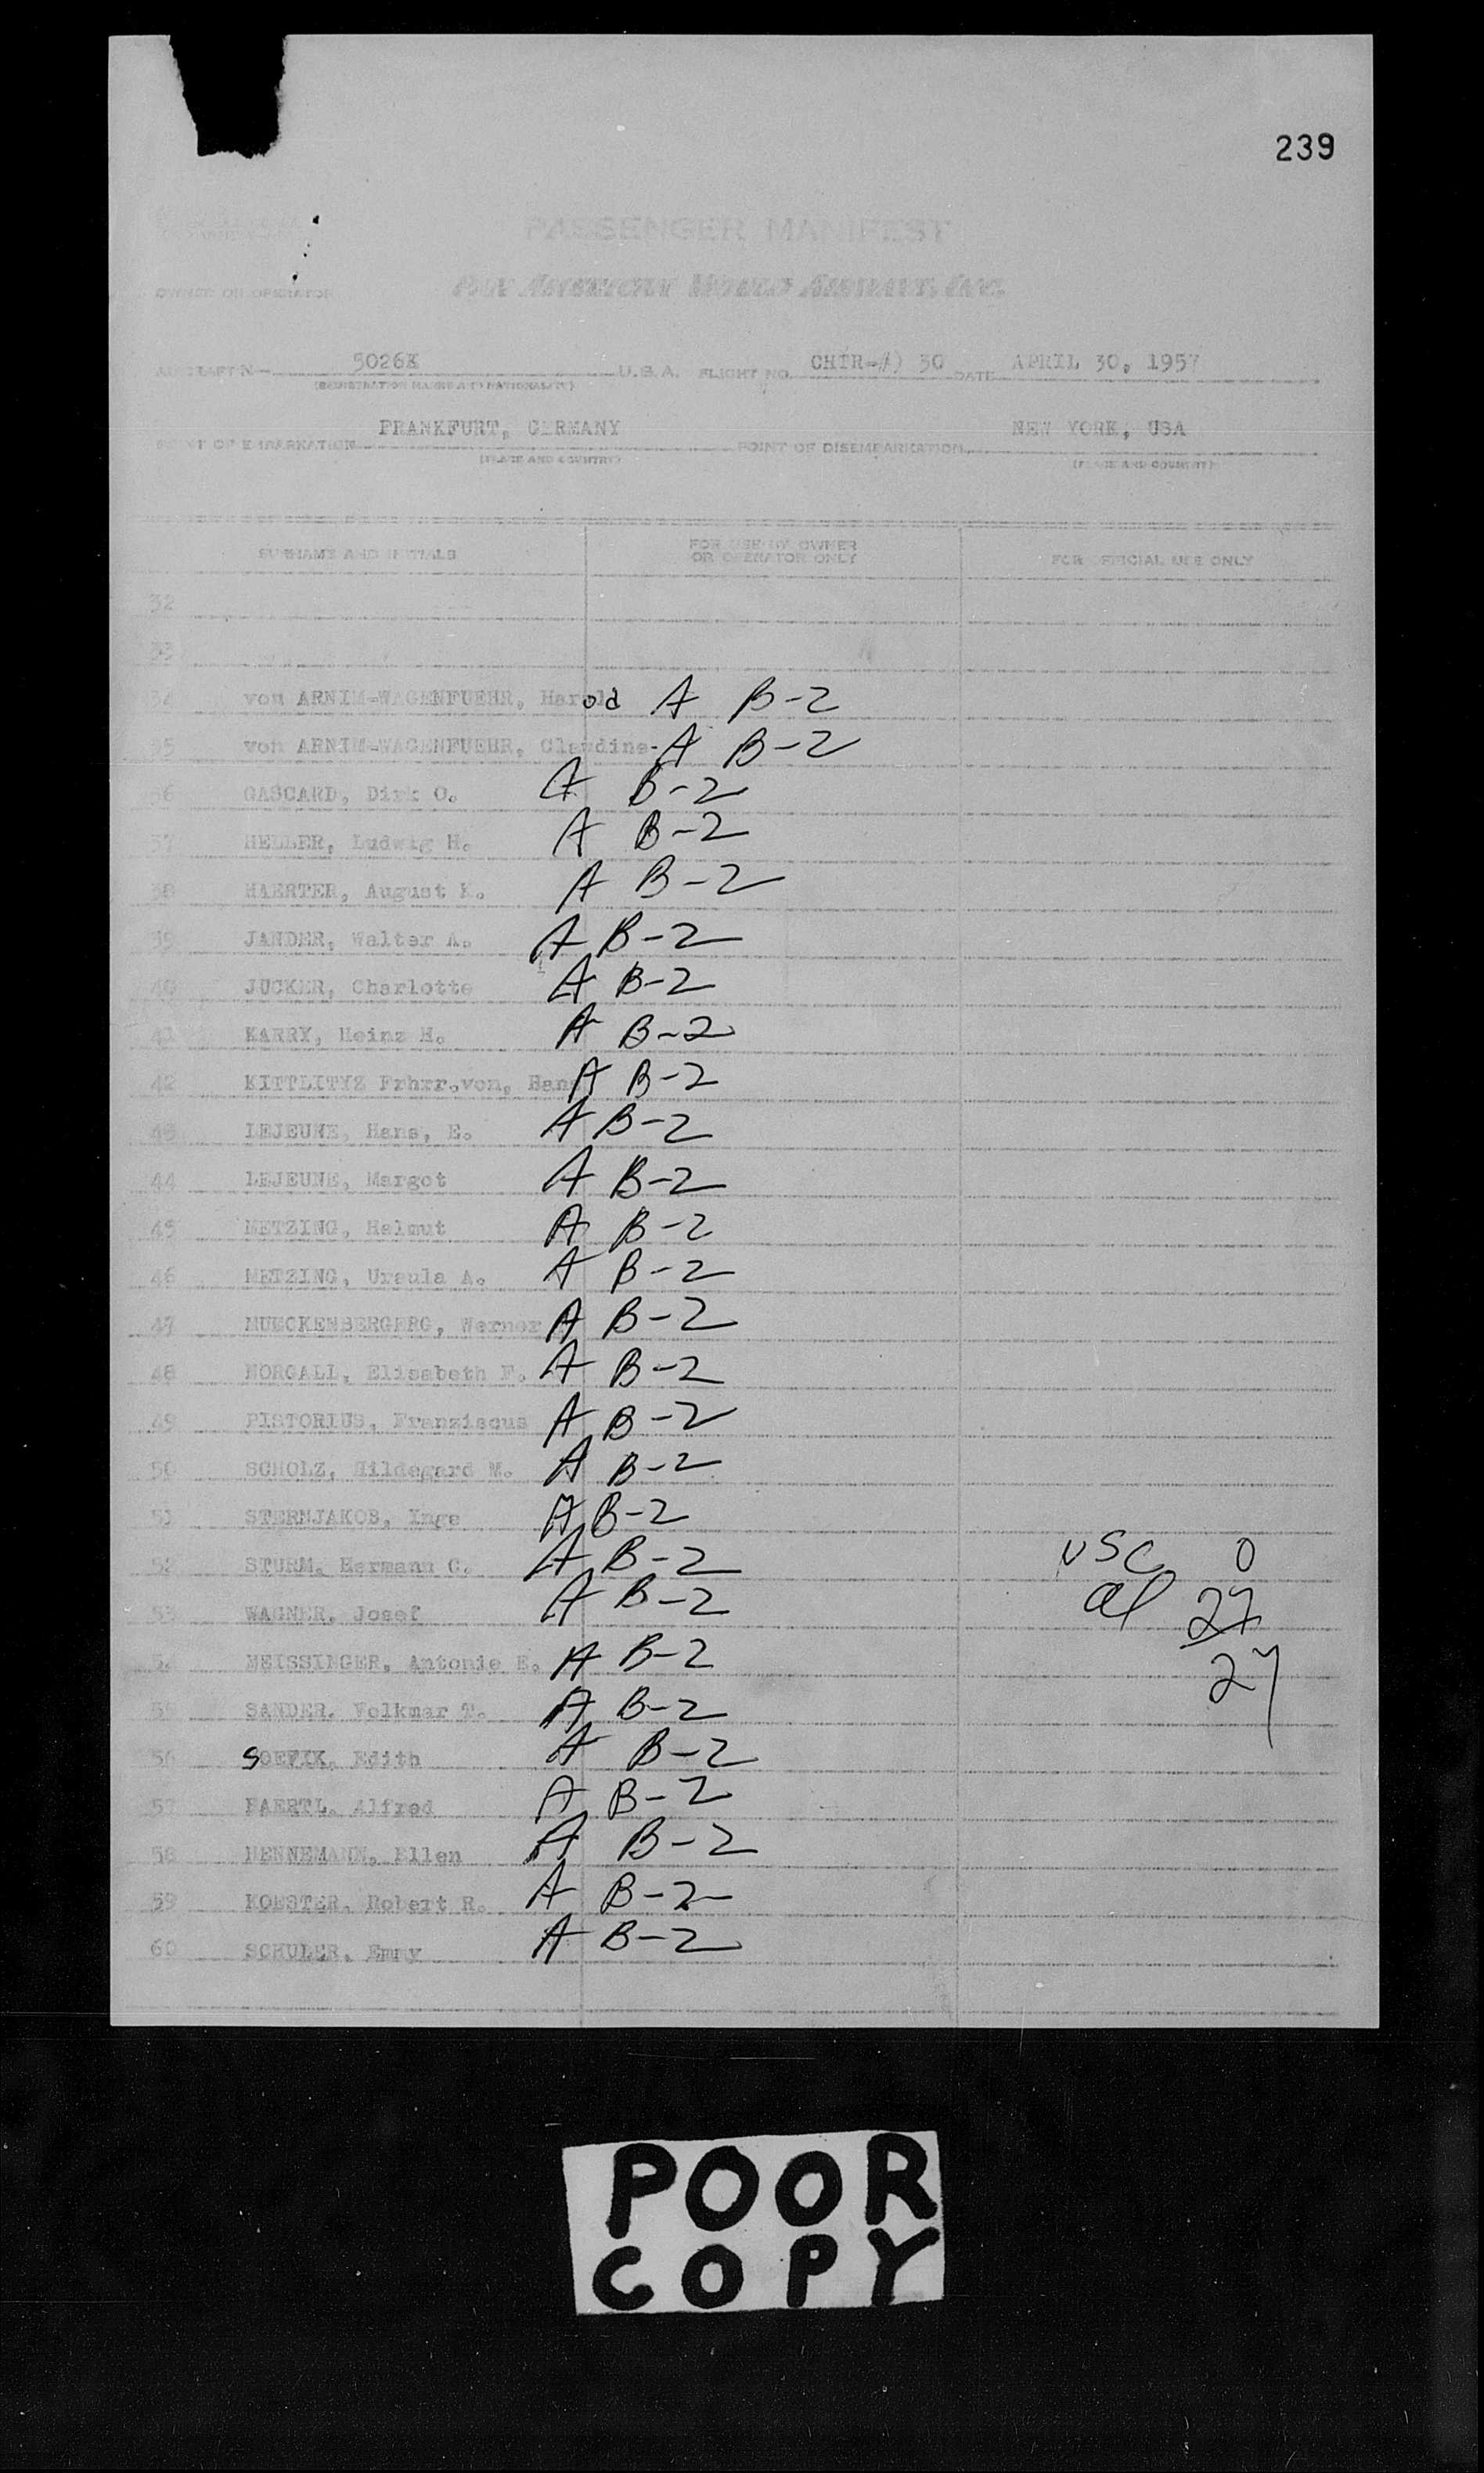 239
PASSENGER MANIFEST
PAN AMERICAN WORLD AIRWAYS, INC.
OWNER OR OPERATOR
AIRCRAFT N- 5026K U.S.A. FLIGHT NO. CHTR- 30 DATE APRIL 30, 1957
(REGISTRATION MARKS AND NATIONALITY)
POINT OF EMBARKATION FRANKFURT, GERMANY POINT OF DISEMBARKATION NEW YORK, USA
(PLACE AND COUNTRY) (PLACE AND COUNTRY)
SURNAME AND INITIALS FOR USE BY OWNER OR OPERATOR ONLY FOR OFFICIAL USE ONLY
32
33
34 von ARNIM-WAGENFUEHR, Harold A B-2
35 von ARNIM-WAGENFUEHR, Claudine- A B-2
36 GASCARD, Dirk O. A B-2
37 HELLER, Ludwig H. A B-2
38 HAERTER, August K. A B-2
39 JANDER, Walter A. A B-2
40 JUCKER, Charlotte A B-2
41 KARRY, Heinz H. A B-2
42 KITTLITYZ Frhrr.von, Hans A B-2
43 LEJEUNE, Hans, E. A B-2
44 LEJEUNE, Margot A B-2
45 METZING, Helmut A B-2
46 METZING, Ursula A. A B-2
47 MUECKENBERGERG, Werner A B-2
48 NORGALL, Elisabeth F. A B-2
49 PISTORIUS, Franziscus A B-2
50 SCHOLZ, Hildegard M. A B-2
51 STERNJAKOB, Inge A B-2
52 STURM, Hermann C. A B-2 USC 0
53 WAGNER, Josef A B-2 al 27
54 MEISSINGER, Antonie E. A B-2 27
55 SANDER, Volkmar T. A B-2
56 SOEFIK, Edith A B-2
57 PAERTL, Alfred A B-2
58 HENNEMANN, Ellen A B-2
59 KOESTER, Robert R. A B-2
60 SCHULER, Emmy A B-2
POOR
COPY